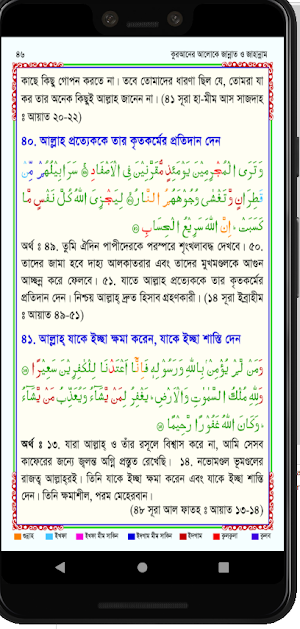 ৪৬ কুরআনের আলোকে জান্নাত ও জাহান্নাম
কাছে কিছু গোপন করতে না। তবে তোমাদের ধারণা ছিল যে, তোমরা যা
কর তার অনেক কিছুই আল্লাহ জানেন না। (৪১ সূরা হা-মীম আস সাজদাহ
ঃ আয়াত ২০-২২)
৪০. আল্লাহ প্রত্যেককে তার কৃতকর্মের প্রতিদান দেন
وَتَرَى الْمُجْرِمِيْنَ يَوْمَئِذٍ مُّقَرَّنِيْنَ فِى الْاَصْفَادِ ۞ سَرَابِيْلُهُمْ مِّنْ
قَطِرَانٍ وَّتَغْشٰى وُجُوْهَهُمُ النَّارُ ۞ لِيَجْزِىَ اللّٰهُ كُلَّ نَفْسٍ مَّا
كَسَبَتْ ؕ اِنَّ اللّٰهَ سَرِيْعُ الْحِسَابِ ۞
অর্থ ঃ ৪৯. তুমি ঐদিন পাপীদেরকে পরস্পরে শৃংখলাবদ্ধ দেখবে। ৫০.
তাদের জামা হবে দাহ্য আলকাতরার এবং তাদের মুখমণ্ডলকে আগুন
আচ্ছন্ন করে ফেলবে। ৫১. যাতে আল্লাহ প্রত্যেককে তার কৃতকর্মের
প্রতিদান দেন। নিশ্চয় আল্লাহ দ্রুত হিসাব গ্রহণকারী। (১৪ সূরা ইব্রাহীম
ঃ আয়াত ৪৯-৫১)
৪১. আল্লাহ্ যাকে ইচ্ছা ক্ষমা করেন, যাকে ইচ্ছা শাস্তি দেন
وَمَنْ لَّمْ يُؤْمِنْۢ بِاللّٰهِ وَرَسُوْلِهٖ فَاِنَّاۤ اَعْتَدْنَا لِلْكٰفِرِيْنَ سَعِيْرًا ۞
وَلِلّٰهِ مُلْكُ السَّمٰوٰتِ وَالْاَرْضِ ؕ يَغْفِرُ لِمَنْ يَّشَآءُ وَيُعَذِّبُ مَنْ يَّشَآءُ
ؕ وَكَانَ اللّٰهُ غَفُوْرًا رَّحِيْمًا ۞
অর্থ ঃ ১৩. যারা আল্লাহ্ ও তাঁর রসূলে বিশ্বাস করে না, আমি সেসব
কাফেরের জন্যে জ্বলন্ত অগ্নি প্রস্তুত রেখেছি। ১৪. নভোমণ্ডল ভূমণ্ডলের
রাজত্ব আল্লাহ্‌রই। তিনি যাকে ইচ্ছা ক্ষমা করেন এবং যাকে ইচ্ছা শাস্তি
দেন। তিনি ক্ষমাশীল, পরম মেহেরবান।
(৪৮ সূরা আল ফাতহ ঃ আয়াত ১৩-১৪)
গুন্নাহ ইখফা ইখফা মীম সাকিন ইদগাম মীম সাকিন ইদগাম কলকলা কলব